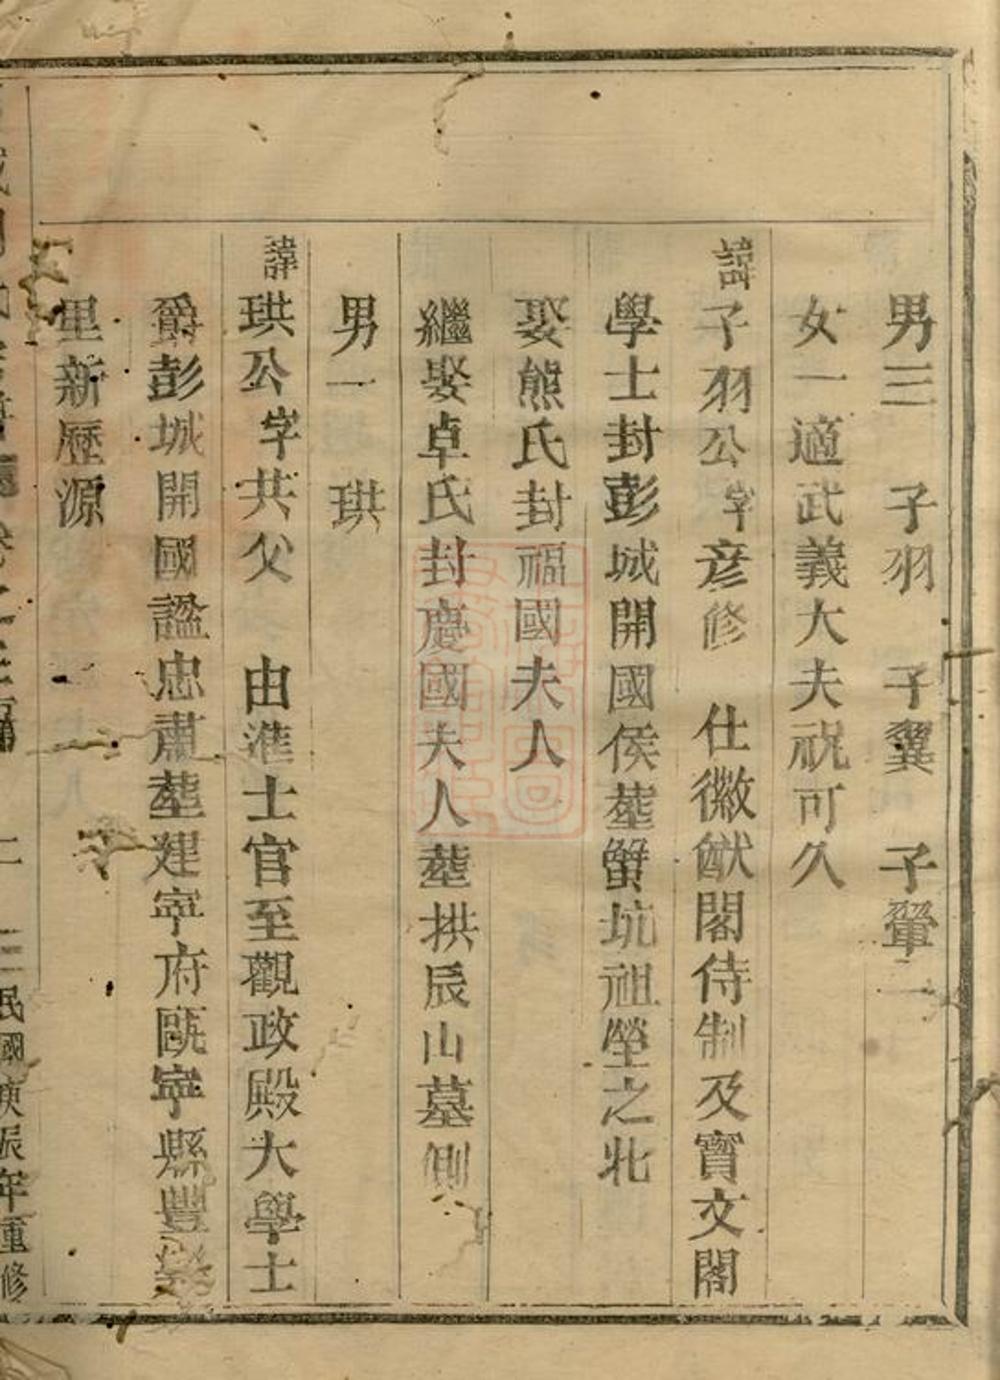 男三 子羽 子翼 子翬
女一適武義大夫祝可久
諱子羽公字彥修 仕徽猷閣侍制及寶文閣
學士封彭城開國侯塟蟹坑祖塋之北
娶熊氏封福國夫人
繼娶卓氏封慶國夫人塟拱辰山墓側
男一 珙
諱珙公字共父 由進士官至觀政殿大學士
爵彭城開國謚忠肅塟建寧府甌寧縣豐樂
里新歷源
二 民國庚辰年重修